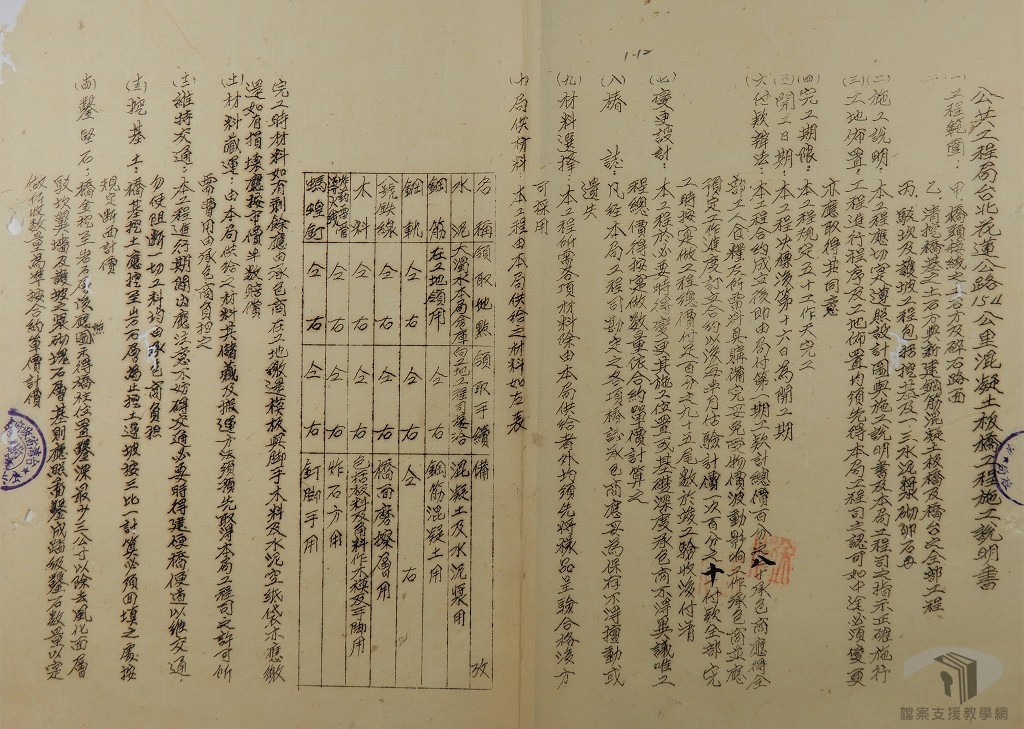 1-12
公共工程局台北花蓮公路154公里混凝土板橋工程施工說明書
(一)工程範圍:甲、橋頭接線之土石方及碎石路面
乙、清挖橋基土石方與新建鋼筋混凝土板橋及橋台之全部工程
丙、駁坎及護坡工程包括挖基及一:三水泥漿砌卵石
(二)施工說明:本工程應切实遵照設計圖與施工說明書及本局工程司之指示正確施行
(三)工地佈置:工程進行程序及工地佈置均須先得本局工程司之認可如中途必須變更
亦應取得其同意
(四)完工期限:本工程規定五十工作天完工
(五)開工日期:本工程決標後第十六日為開工期
(六)付款辦法:本工程合約成立後即由局付第一期工款計總價百分之八十承包商應將全
部工人食糧及所需料具購備完妥免受物價波動影响工作承包商並應
預定工作進度訂立合約以後每半月估驗計價一次百分之十付款全部完
工時按实做工程總價付足百分之九十五尾數於竣工驗收後付清
(七)變更設計:本工程於必要時得變更其施工位置或其基礎深度承包商不得異議唯工
程總價得按实做數量依合約單價計算之
(八)樁誌:凡經本局工程司勘定之各項樁誌承包商應妥為保存不得擅動或
遺失
(九)材料選擇:本工程所需各項材料除由本局供給者外均須先將樣品呈驗合格後方
可採用
(十)局供材料:本工程由本局供給之材料如左表
名稱 領取地點 領取手續 備攷
水泥 大濁水本局倉庫 向工地工程司接洽 混凝土及水泥漿用
鋼筋 在工地領用 鋼筋混凝土用
鋼軌 仝右 仝右 仝右
鋭鉄線 仝右 仝右 橋面磨擦層用
木料 仝右 仝右 包括板料及角料作木模及手脚用
炸药雷管導火線 仝右 仝右 炸石方用
螞蝗釘 仝右 仝右 釘脚手用
完工時材料如有剩餘應由承包商在工地繳還模板與脚手木料及水泥空紙袋亦應繳
還如有損壞應按市價半數賠償
(十一)材料藏運:由本局供給之材料其儲藏及搬運方法須預先取得本局工程司之許可所
需費用由承包商負担之
(十二)維持交通:本工程進行期間內應注意不妨碍交通必要時得建便橋便道以維交通
勿使阻断一切工料均由承包商負担
(十三)挖基土:橋基挖土應挖至岩石層為止挖土邊坡按三比一計算必須回填之處按
規定断面計價
(十四)鑿堅石:橋台挖至岩石層後應照圖示得橋柱位置鑿深最少三公寸以除去風化面層
駁坎翼墻及護坡之漿砌塊石層基則應照圖鑿成踏級鑿石數量以定
做所收數量為準按合約單價計價
檔案支援教學網